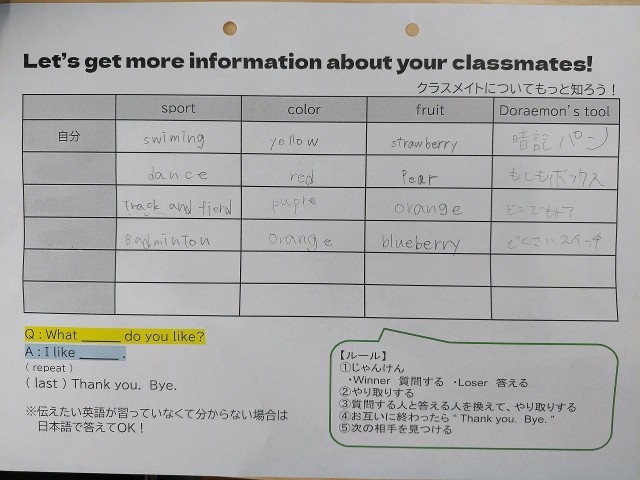 Let's get more information about your classmates!
クラスメイトについてもっと知ろう！
sport color fruit Doraemon's tool
自分 swiming yellow strawberry 暗記パン
dance red Pear もしもボックス
Track and fierd pupre orange どこでもドア
Badminton orange blueberry どくさいスイッチ
Q : What ______ do you like?
A : I like ______ .
( repeat )
( last ) Thank you. Bye.
※伝えたい英語が習っていなくて分からない場合は
日本語で答えてOK！
【ルール】
①じゃんけん
・Winner 質問する ・Loser 答える
②やり取りする
③質問する人と答える人を換えて、やり取りする
④お互いに終わったら “ Thank you. Bye. ”
⑤次の相手を見つける